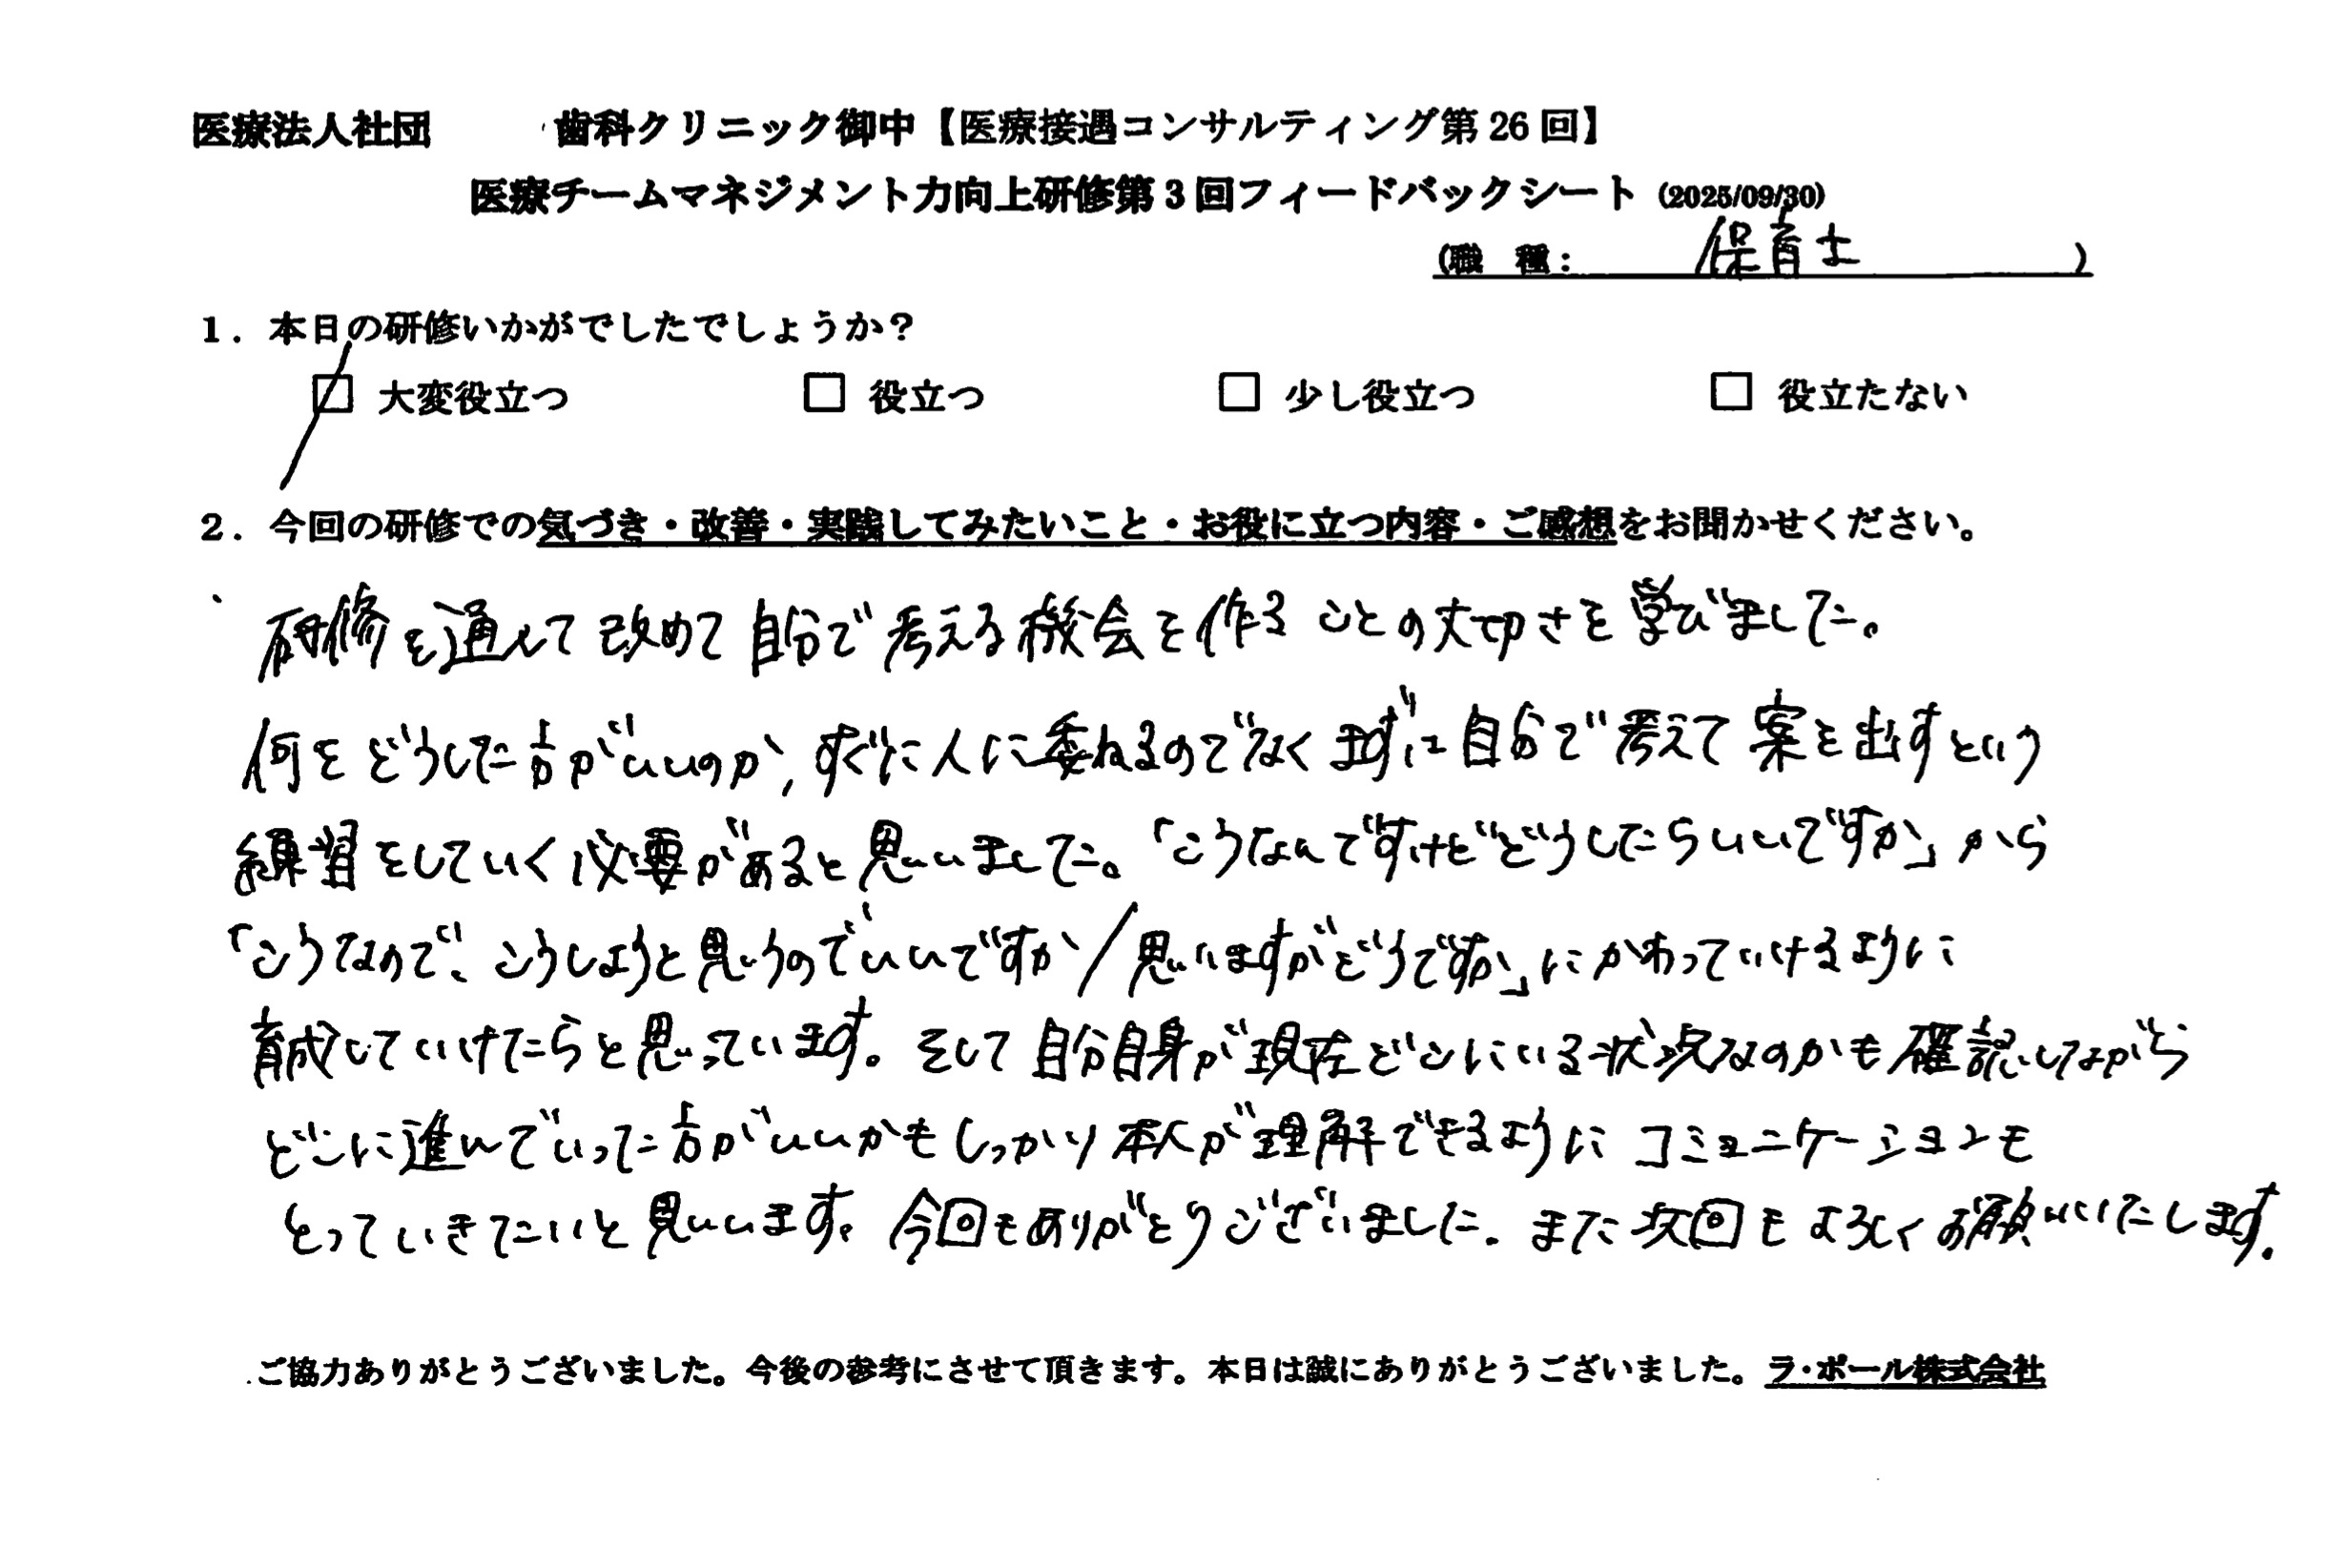 医療法人社団 歯科クリニック御中【医療接遇コンサルティング第26回】
医療チームマネジメント力向上研修第3回フィードバックシート（2025/09/30）
（職 種： 保育士 ）
1．本日の研修いかがでしたでしょうか？
☑ 大変役立つ □ 役立つ □ 少し役立つ □ 役立たない
2．今回の研修での気づき・改善・実践してみたいこと・お役に立つ内容・ご感想をお聞かせください。
研修を通して改めて自分で考える機会を作ることの大切さを学びました。
何をどうした方がいいのか、すぐに人に委ねるのでなくまずは自分で考えて案を出すという
練習をしていく必要があると思いました。「こうなんですけどどうしたらいいですか」から
「こうなので、こうしようと思うのでいいですか/思いますがどうですか」にかわっていけるように
育成していけたらと思っています。そして自分自身が現在どこにいる状況なのかも確認しながら
どこに進んでいった方がいいかもしっかり本人が理解できるようにコミュニケーションも
とっていきたいと思います。今回もありがとうございました。また次回もよろしくお願いいたします。
ご協力ありがとうございました。今後の参考にさせて頂きます。本日は誠にありがとうございました。ラ・ポール株式会社